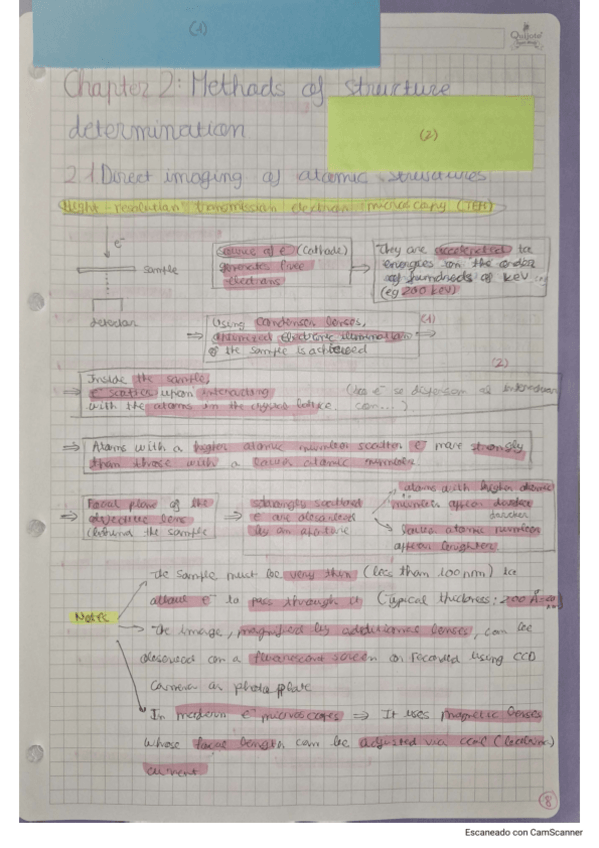 (1)
Quijote
Chapter 2: Methods of structure
determination
(2)
2.1 Direct imaging of atomic structures
Hight resolution transmission electron microscopy (TEM)
e⁻
sample
detector
Source of e⁻ (cathode)
generates free
electrons
They are accelerated to
energies on the order
of hundreds of keV
(eg 200 keV)
⇒ Using condenser lenses,
optimized electronic illumination
of the sample is achieved
(1)
⇒
(2)
⇒ Inside the sample,
e⁻ scatter upon interacting
with the atoms in the crystal lattice.
(los e⁻ se dispersan al interaccionar
con...)
⇒ Atoms with a higher atomic number scatter e⁻ more strongly
than those with a lower atomic number.
⇒ Focal plane of the
objective lens
(behind the sample
⇒ strongly scattered
e⁻ are absorbed
by an aperture
atoms with higher atomic
number appear darker
lower atomic number
appear brighter
Notes
The sample must be very thin (less than 100 nm) to
allow e⁻ to pass through it (Typical thickness: 200 Å
The image, magnified by additional lenses, can be
observed on a fluorescent screen or recorded using CCD
camera or photo plate
In modern e⁻ microscopes ⇒ It uses magnetic lenses
whose focal length can be adjusted via coil
current
8
Escaneado con CamScanner